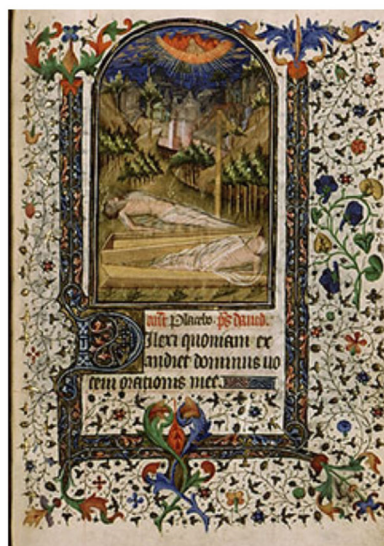 ant Placebo. ps dauid.
Dilexi quoniam ex
audiet dominus uo
cem orationis mee.